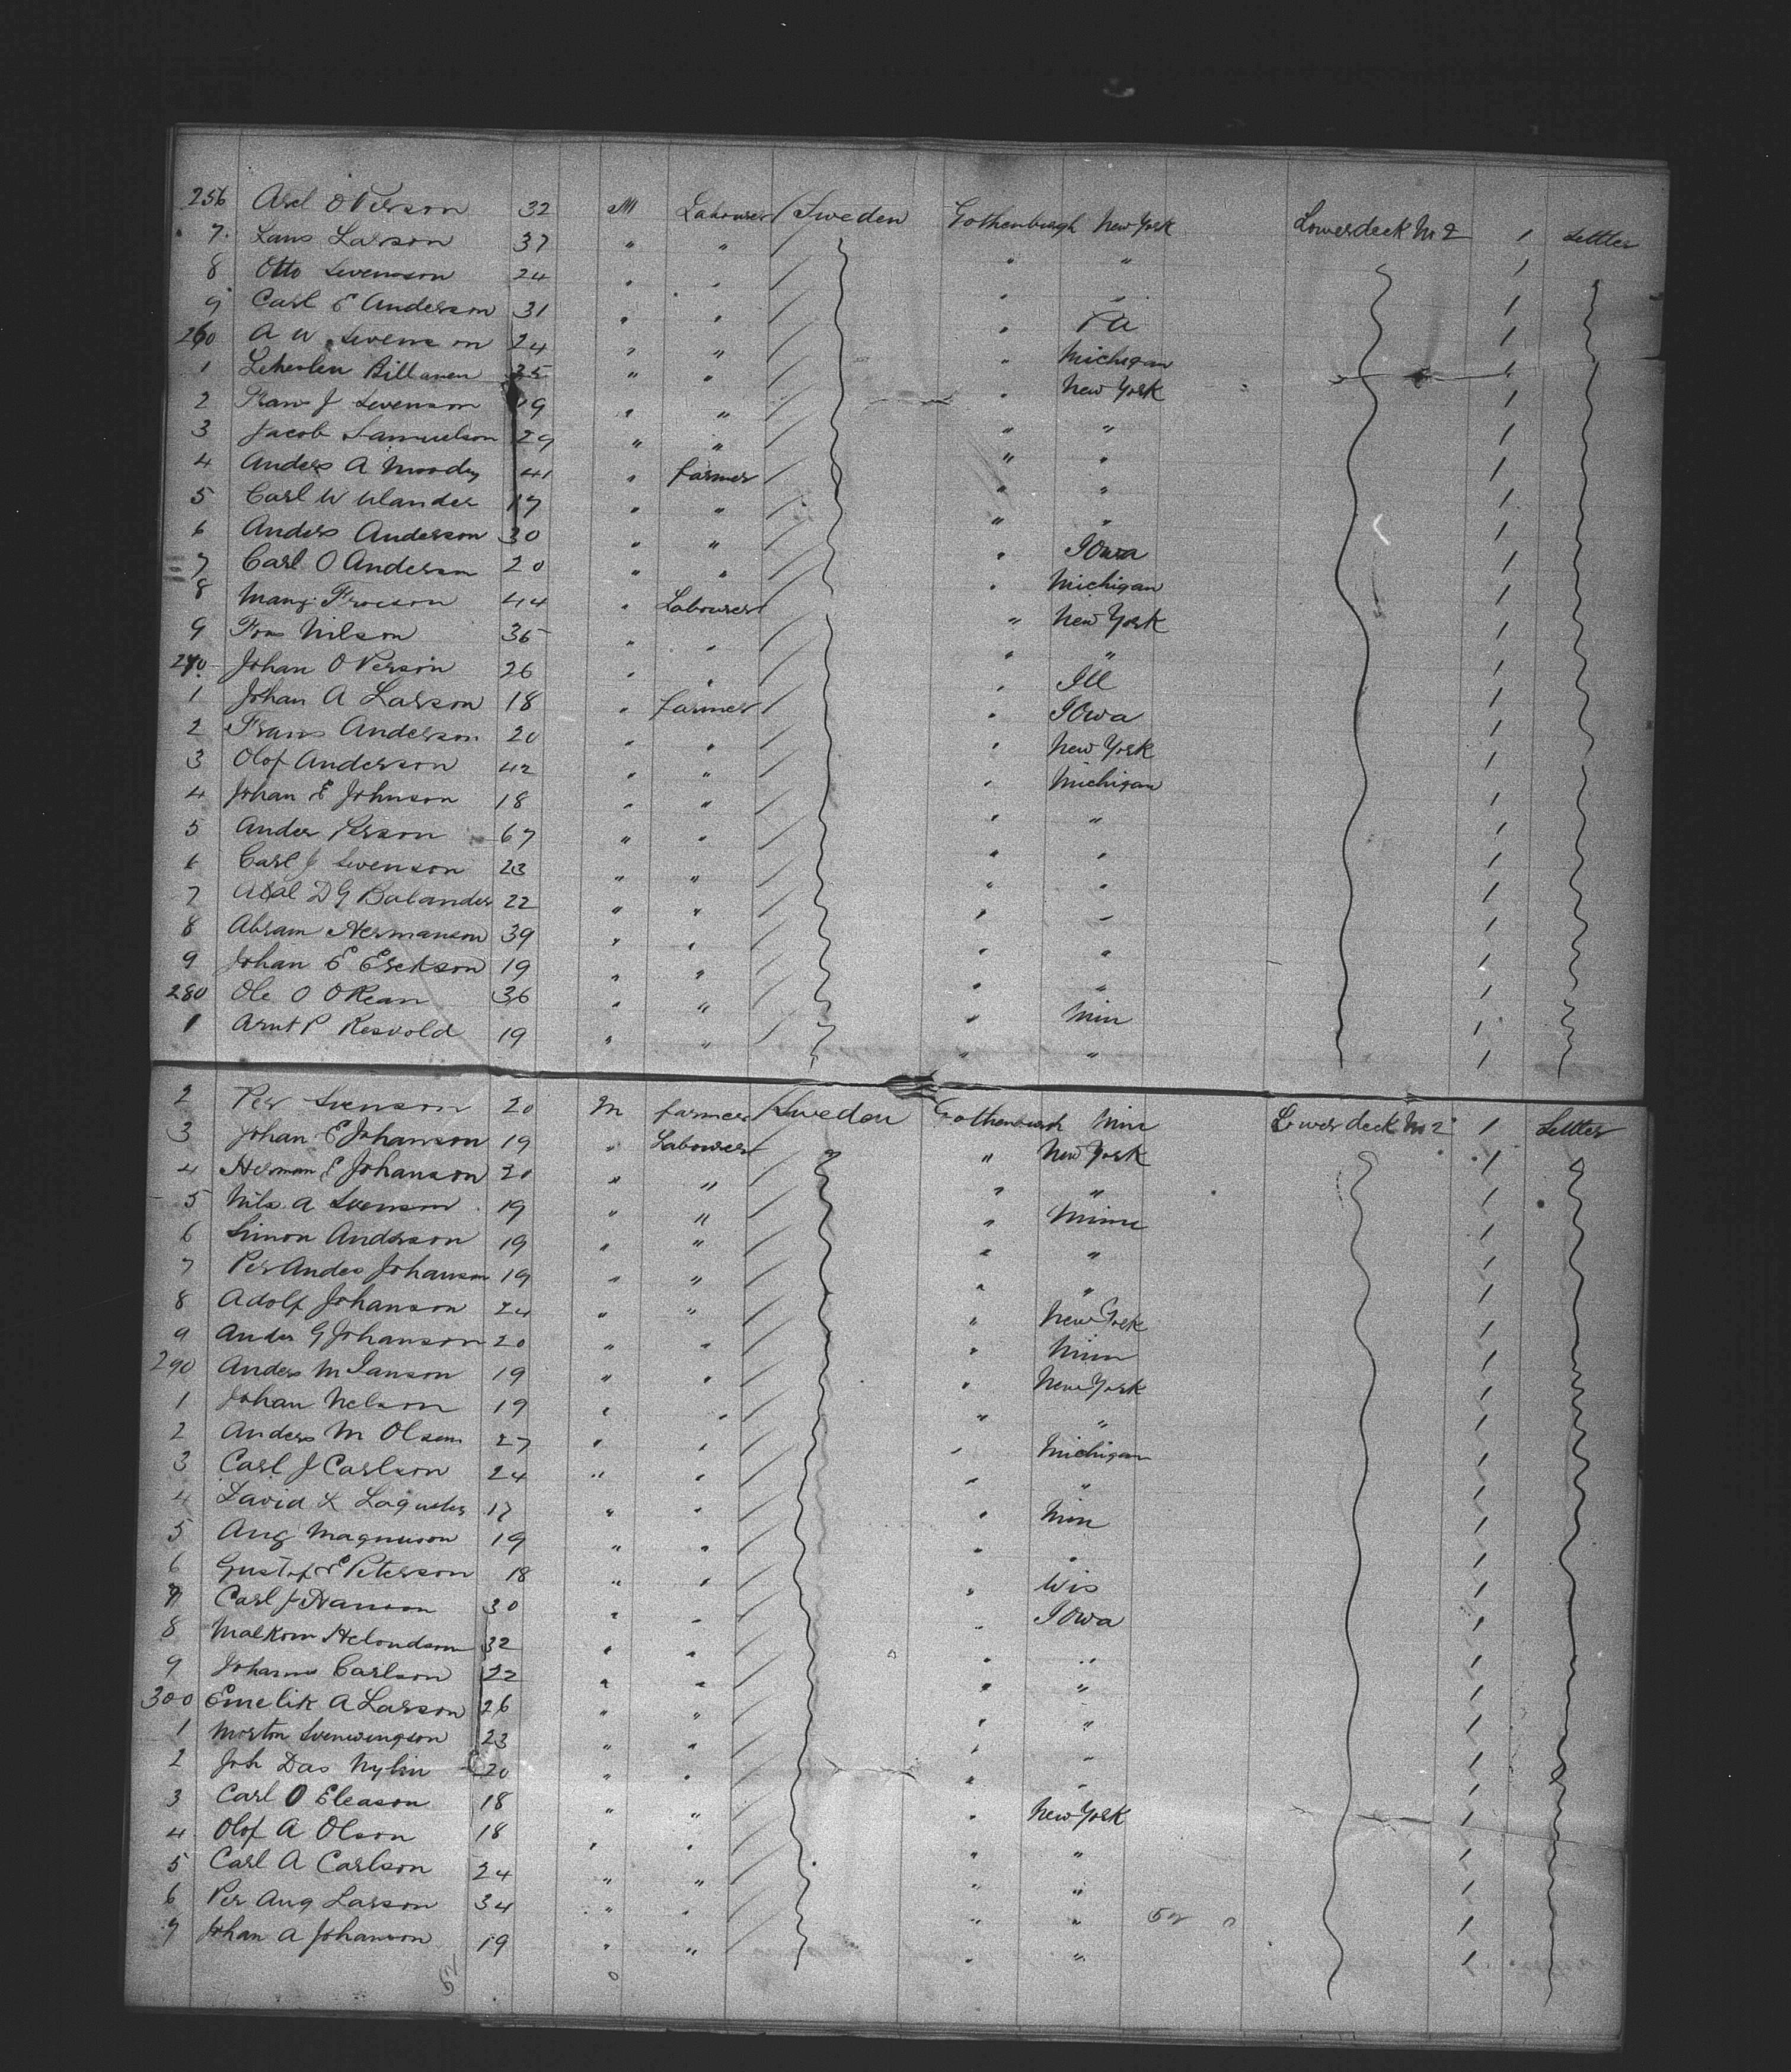 256 Axel O Person 32 M Labourer Sweden Gothenburgh New York Lowerdeck No 2 1 Settler
7 Lans Larson 37 " " " " 1
8 Otto Swenson 24 " " " " 1
9 Carl E Anderson 31 " " " Pa 1
260 A W Swenson 24 " " " Michigan 1
1 25 " " " New York 1
2 Frans J Swenson 19 " " " " 1
3 Jacob Samuelson 29 " " " " 1
4 Anders A 41 " farmer " " 1
5 Carl W Ulander 17 " " " " 1
6 Anders Anderson 30 " " " Iowa 1
7 Carl O Anderson 20 " " " Michigan 1
8 44 " Labourer " New York 1
9 Nilson 36 " " " " 1
270 Johan O Person 26 " " " Ill 1
1 Johan A Larson 18 " farmer " Iowa 1
2 Frans Anderson 20 " " " New York 1
3 Olof Anderson 42 " " " Michigan 1
4 Johan E Johnson 18 " " " " 1
5 Ander Person 67 " " " " 1
6 Carl J Swenson 23 " " " " 1
7 Axal D G Bolander 22 " " " " 1
8 Abram Hermanson 39 " " " " 1
9 Johan E Erckson 19 " " " " 1
280 Ole O O Rean 36 " " " Min 1
1 Arnt P Resvold 19 " " " " 1
2 Per Svenson 20 M farmer Sweden Gothenburgh Minn Lowerdeck No 2 1 Settler
3 Johan E Johanson 19 " Labourer " New York 1
4 Herman E Johanson 20 " " " " 1
5 Nils A Svenson 19 " " " Minn 1
6 Simon Anderson 19 " " " " 1
7 Per Ander Johanson 19 " " " " 1
8 Adolf Johanson 24 " " " New York 1
9 Ander G Johanson 20 " " " Minn 1
290 Anders M Janson 19 " " " New York 1
1 Johan Nelson 19 " " " " 1
2 Anders M Olson 27 " " " Michigan 1
3 Carl J Carlson 24 " " " " 1
4 David L 17 " " " Min 1
5 Aug Magnuson 19 " " " " 1
6 Gustaf E Peterson 18 " " " Wis 1
7 Carl J Hanson 30 " " " Iowa 1
8 Malkom 32 " " " " 1
9 Johannes Carlson 22 " " " " 1
300 Emelik A Larson 26 " " " " 1
1 Morton 23 " " " " 1
2 Joh Das Nylin 20 " " " " 1
3 Carl O Eleason 18 " " " New York 1
4 Olof A Olson 18 " " " " 1
5 Carl A Carlson 24 " " " " 1
6 Per Aug Larson 34 " " " " 1
7 Johan A Johanson 19 " " " " 1